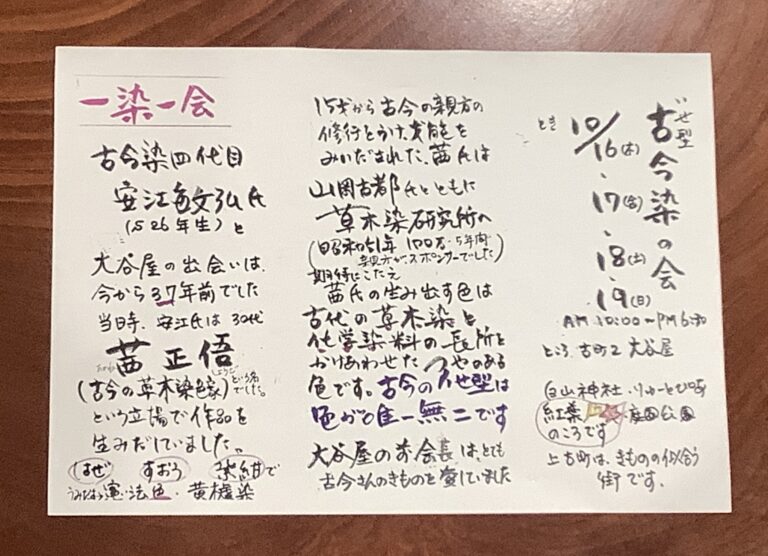 いせ型
古今染の会
とき 10/16(木)・17(金)・18(土)・19(日)
AM 10:00〜PM 6:30
ところ 古町2 大谷屋
白山神社・りゅーとぴあ
紅葉 庭園公園
のころです
上古町は、きものの似合う
街です。
15才から古今の親方の
修行をうけ、才能を
みいだされた、茜氏は
山岡古都氏とともに
草木染研究所へ
(昭和51年 100万・5年間
親方がスポンサーでした)
期待にこたえ
茜氏の生み出す色は
古代の草木染と
化学染料の長所と
かけあわせたつやのある
色です。古今のいせ型は
色が唯一無二です
大谷屋のお会長は、とても
古今さんのきものを愛していました
一染一会
古今染四代目
安江敏弘氏
(S26年生)と
大谷屋の出会いは、
今から37年前でした
当時、安江氏は30代
茜正悟
(古今の草木染色家)という名でした。
という立場で作品を
生みだしていました。
はぜ すおう 紫紺で
うみだす憲法色・黄櫨染